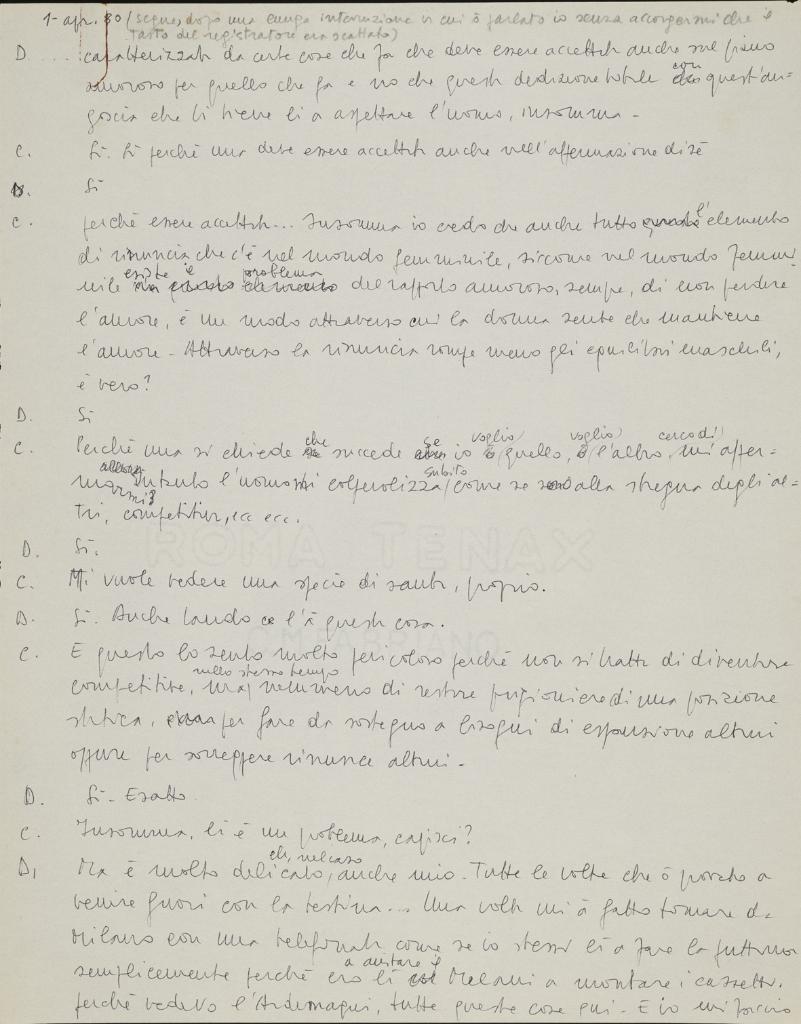 1- apr. 80 (segue, dopo una lunga interruzione in cui ò parlato io senza accorgermi che il
tasto del registratore era scattato)
D. .... caratterizzata da certe cose che fa che deve essere accettata anche sul piano
amoroso per quello che fa e no che questa dedizione totale con quest'an=
goscia che ti tiene lì a aspettare l'uomo, insomma -
C. Sì. Sì perché una deve essere accettata anche nell'affermazione di sé
D. Sì
C. perché essere accettata... Insomma io credo che anche tutto l'elemento
di rinuncia che c'è nel mondo femminile, siccome nel mondo femmi
nile esiste il problema del rapporto amoroso, sempre, di non perdere
l'amore, è un modo attraverso cui la donna sente che mantiene
l'amore - Attraverso la rinuncia rompe meno gli equilibri maschili,
è vero?
D. Sì
C. Perché una si chiede che succede se io voglio quello, voglio l'altro, cerco di affer=
marmi? allora intanto l'uomo mi colpevolizza subito come se alla stregua degli al=
tri, competitiva, ecc ecc.
D. Sì.
C. Mi vuole vedere una specie di santa, proprio.
D. Sì. Anche l'ò questa cosa.
C. E questo lo sento molto pericoloso perché non si tratta di diventare
competitive, ma nello stesso tempo nemmeno di restare prigioniere di una posizione
statica, per fare da sostegno a bisogni di espansione altrui
oppure per sorreggere rinunce altrui -
D. Sì - Esatto
C. Insomma, lì è un problema, capisci?
D. Ma è molto delicato, eh, nel caso anche mio. Tutte le volte che ò provato a
venire fuori con la testina... Una volta mi à fatto tornare da
Milano con una telefonata come se io stessi lì a fare la puttana
semplicemente perché ero lì a aiutare il Melani a montare i cassetti.
perché vedevo l'Ardemagni, tutte queste cose qui - E io mi faccio
ROMA TENAX
C.M. FABRIANO